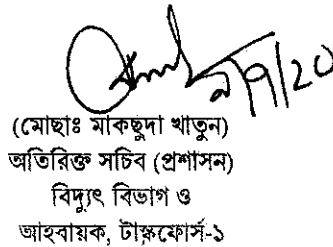 ২/৭/২০
(মোছাঃ মাকছুদা খাতুন)
অতিরিক্ত সচিব (প্রশাসন)
বিদ্যুৎ বিভাগ ও
আহবায়ক, টাস্কফোর্স-১